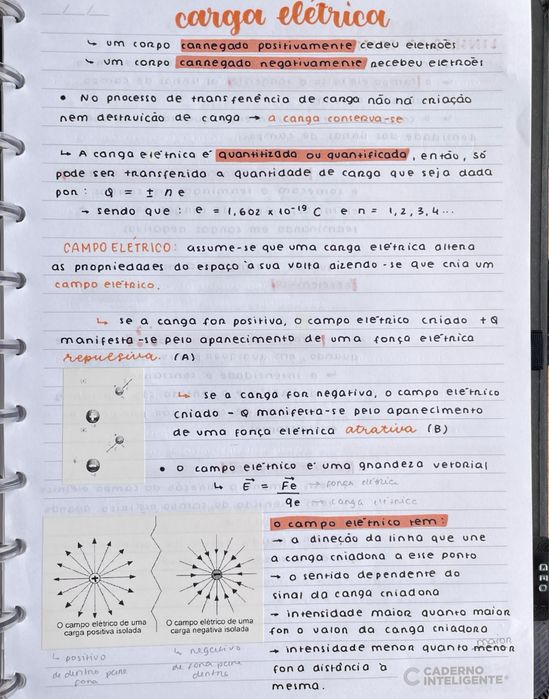 carga elétrica
↳ um corpo carregado positivamente cedeu eletrões
↳ um corpo carregado negativamente recebeu eletrões
• No processo de transferência de carga não há criação
nem destruição de carga → a carga conserva-se
↳ A carga elétrica é quantitizada ou quantificada, então, só
pode ser transferido a quantidade de carga que seja dada
por: Q = ± n e
→ sendo que: e = 1,602 x 10⁻¹⁹ C e n = 1, 2, 3, 4...
CAMPO ELÉTRICO: assume-se que uma carga elétrica altera
as propriedades do espaço à sua volta dizendo-se que cria um
campo elétrico.
↳ se a carga for positiva, o campo elétrico criado + Q
manifesta-se pelo aparecimento de uma força elétrica
repulsiva. (A)
↳ se a carga for negativa, o campo elétrico
criado - Q manifesta-se pelo aparecimento
de uma força elétrica atrativa (B)
• o campo elétrico é uma grandeza vetorial
↳ E⃗ = F⃗e → força elétrica
qe → carga elétrica
o campo elétrico tem:
→ a direção da linha que une
a carga criadora a esse ponto
→ o sentido dependente do
sinal da carga criadora
→ intensidade maior quanto maior
for o valor da carga criadora
→ intensidade menor quanto menor maior
for a distância à
mesma.
O campo elétrico de uma
carga positiva isolada
O campo elétrico de uma
carga negativa isolada
↳ positivo
de dentro para
fora
↳ negativo
de fora para
dentro
CADERNO
INTELIGENTE®